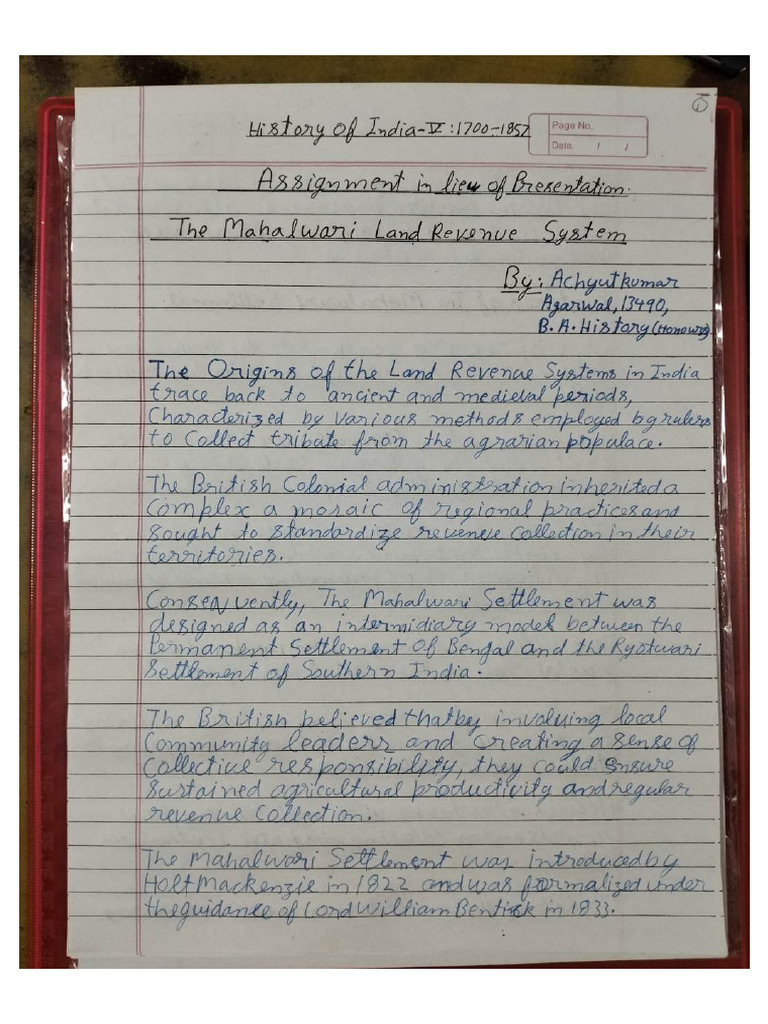 ①
History of India-V:1700-1857
Page No.
Date. / /
Assignment in lieu of Presentation.
The Mahalwari Land Revenue System
By: Achyutkumar
Agarwal, 13490,
B.A. History (Honours)
The Origins of the Land Revenue Systems in India
trace back to ancient and medieval periods,
Characterized by various methods employed by rulers
to collect tribute from the agrarian populace.
The British Colonial administration inherited a
complex a mosaic of regional practices and
sought to standardize revenue collection in their
territories.
Consequently, The Mahalwari Settlement was
designed as an intermidiary model between the
Permanent Settlement of Bengal and the Ryotwari
Settlement of Southern India.
The British believed that by involving local
Community leaders and creating a sense of
collective responsibility, they could ensure
sustained agricultural productivity and regular
revenue collection.
The Mahalwari Settlement was introduced by
Holt Mackenzie in 1822 and was formalized under
the guidance of Lord William Bentick in 1833.